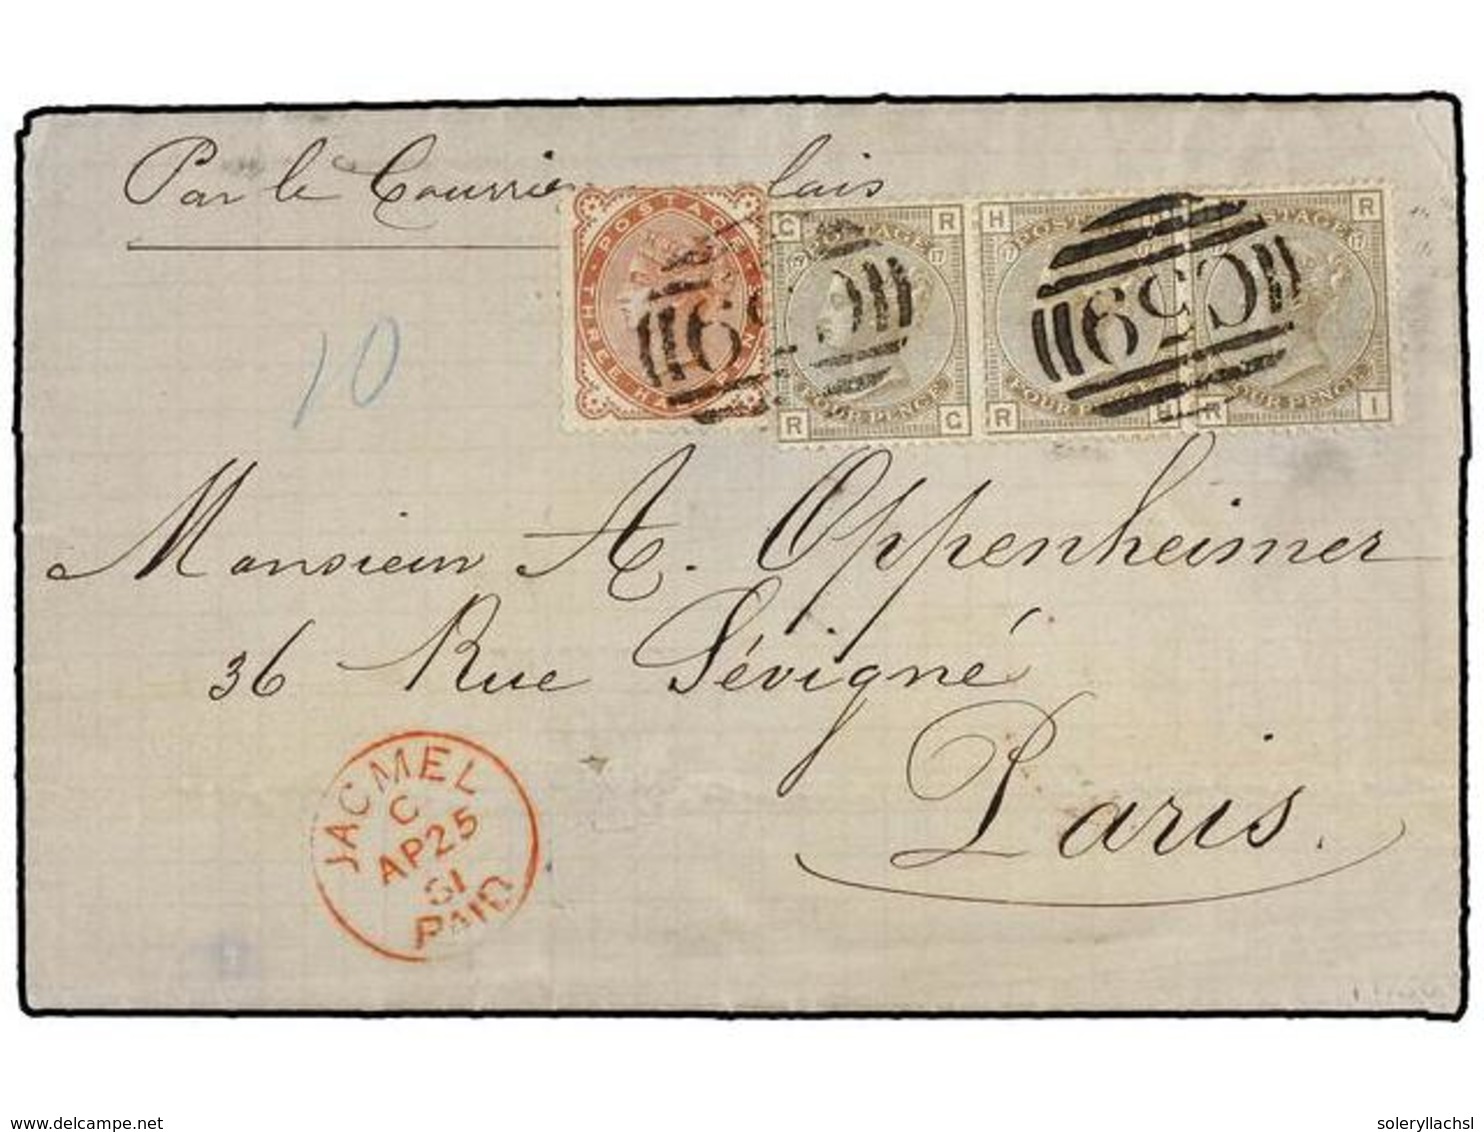 Par le Courrie lais
POSTAGE
THREE HA
G R
POSTAGE
17 17
FOUR PENCE
R G
H
POSTAGE
17
FOUR P
R H
STAGE R
17
OUR PENCE
R I
C59
C59
10
Monsieur A. Oppenheimer
36 Rue Sévigné
Paris.
JACMEL
C
AP25
81
PAID
www.delcampe.net
soleryllachsl